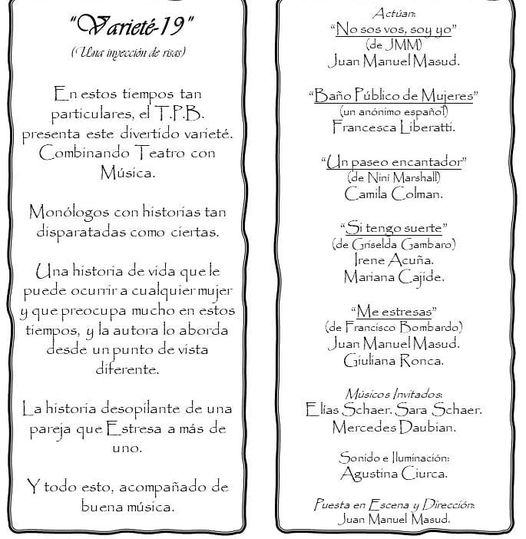 "Varieté-19"
(Una inyección de risas)
En estos tiempos tan
particulares, el T.P.B.
presenta este divertido varieté.
Combinando Teatro con
Música.
Monólogos con historias tan
disparatadas como ciertas.
Una historia de vida que le
puede ocurrir a cualquier mujer
y que preocupa mucho en estos
tiempos, y la autora lo aborda
desde un punto de vista
diferente.
La historia desopilante de una
pareja que Estresa a más de
uno.
Y todo esto, acompañado de
buena música.
Actúan:
"No sos vos, soy yo"
(de JMM)
Juan Manuel Masud.
"Baño Público de Mujeres"
(un anónimo español)
Francesca Liberatti.
"Un paseo encantador"
(de Niní Marshall)
Camila Colman.
"Si tengo suerte"
(de Griselda Gambaro)
Irene Acuña.
Mariana Cajide.
"Me estresas"
(de Francisco Bombardo)
Juan Manuel Masud.
Giuliana Ronca.
Músicos Invitados:
Elías Schaer. Sara Schaer.
Mercedes Daubian.
Sonido e Iluminación:
Agustina Ciurca.
Puesta en Escena y Dirección:
Juan Manuel Masud.